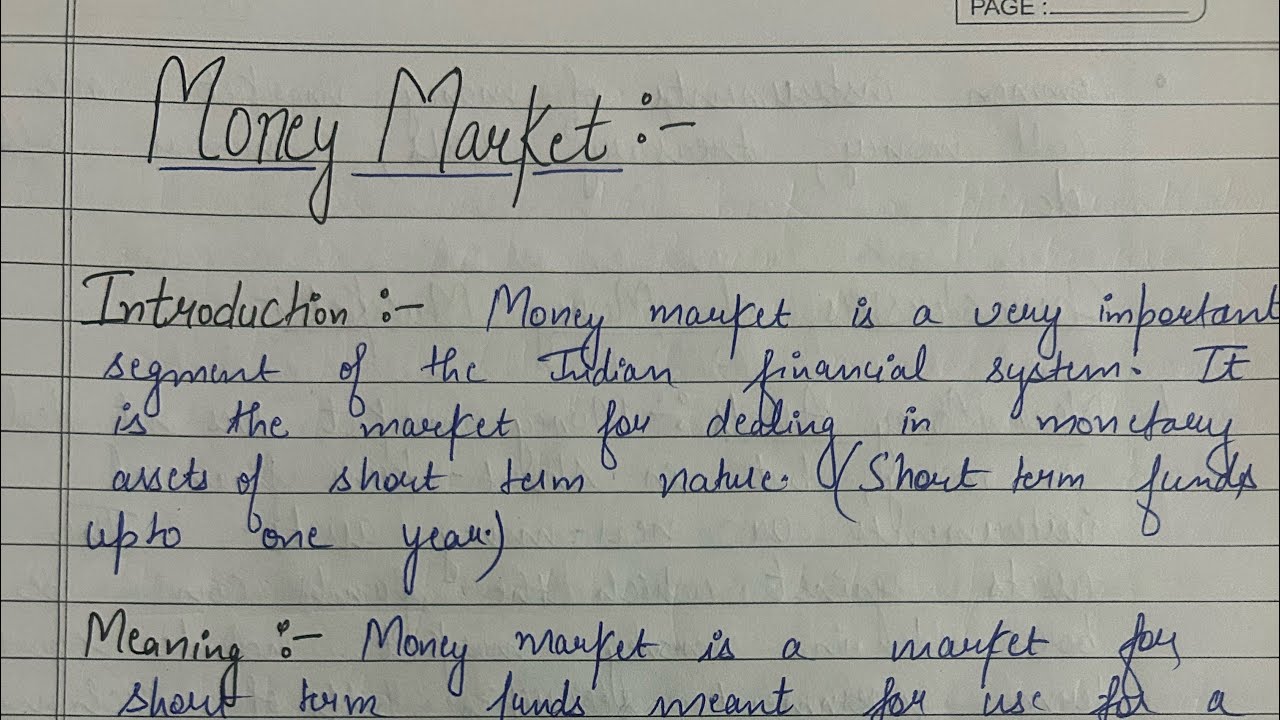 PAGE :
Money Market :-
Introduction :- Money market is a very important
segment of the Indian financial system. It
is the market for dealing in monetary
assets of short term nature. (Short term funds
upto one year.)
Meaning :- Money market is a market for
short term funds meant for use for a